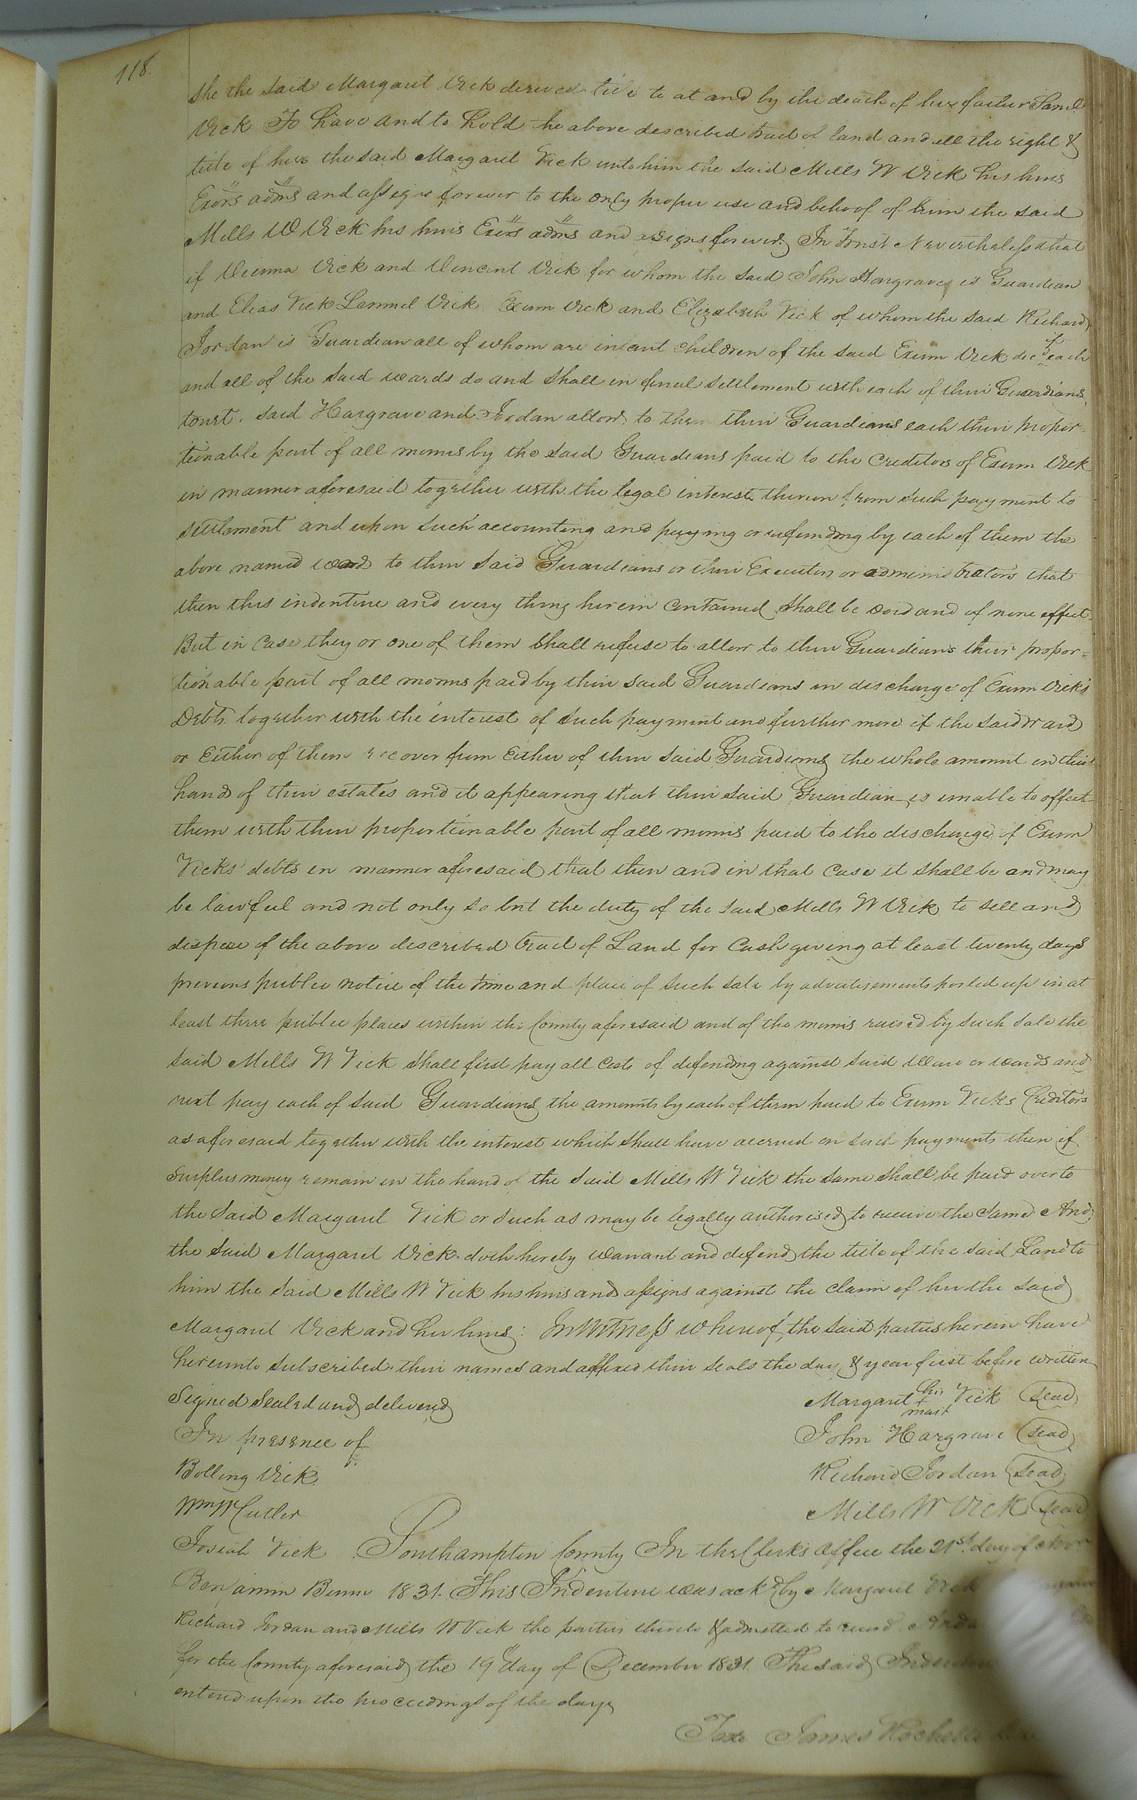 118.
she the said Margaret Vick derived title to at and by the death of her father Saml
Vick To have and to hold the above described tract of land and all the right &
title of her the said Margaret Vick unto him the said Mills W Vick his heirs
Exors adms and assigns forever to the only proper use and behoof of him the said
Mills W Vick his heirs Exors adms and assigns forever, In Trust Nevertheless that
if Vienna Vick and Vincent Vick for whom the said John Hargrave is Guardian
and Elias Vick Lemmel Vick Exum Vick and Elizabeth Vick of whom the said Richard
Jordan is Guardian all of whom are infant children of the said Exum Vick decd each
and all of the said wards do and shall in final settlement with each of their Guardians,
towit, said Hargrave and Jordan allow to them their Guardians each their propor-
tionable part of all monies by the said Guardians paid to the Creditors of Exum Vick
in manner aforesaid together with the legal interest thereon from such payment to
settlement and upon such accounting and paying or refunding by each of them the
above named ward to their said Guardians or their Executors or administrators that
then this indenture and every thing herein contained shall be void and of none effect.
But in case they or one of them shall refuse to allow to their Guardians their propor=
tionable part of all monies paid by their said Guardians in discharge of Exum Vick's
Debts together with the interest of such payment and further more if the said ward
or Either of them recover from Either of their said Guardians the whole amount in their
hands of their estates and it appearing that their said Guardian is unable to offset
them with their proportionable part of all monies paid to the discharge of Exum
Vicks debts in manner aforesaid that then and in that case it shall be and may
be lawful and not only so but the duty of the said Mills W Vick to sell and
dispose of the above described tract of Land for Cash giving at least twenty days
previous public notice of the time and place of such sale by advertisements posted up in at
least three public places within the County aforesaid and of the monies raised by such sale the
said Mills W Vick shall first pay all costs of defending against said Ward or wards and
next pay each of said Guardians the amounts by each of them paid to Exum Vicks Creditors
as aforesaid together with the interest which shall have accrued on such payments then if
Surplus money remain in the hand of the said Mills W Vick the same shall be paid over to
the said Margaret Vick or such as may be legally authorised to receive the same And
the said Margaret Vick doth hereby warrant and defend the title of the said Land to
him the said Mills W Vick his heirs and assigns against the claim of her the said
Margaret Vick and her heirs: In Witness whereof, the said parties herein have
hereunto subscribed their names and affixed their seals the day & year first before written
Signed Sealed and delivered Margaret her + mark Vick (Seal)
In presence of John Hargrave (Seal)
Bolling Vick Richard Jordan (Seal)
Wm W Cutler Mills W Vick (Seal)
Josiah Vick Southampton County In the Clerk's office the 21st day of Novr
Benjamin 1831. This Indenture was ackd by Margaret Vick
Richard Jordan and Mills W Vick the parties thereto & admitted to record
for the County aforesaid the 19th day of December 1831 The said
entered upon the proceedings of the day
Teste James Rochelle